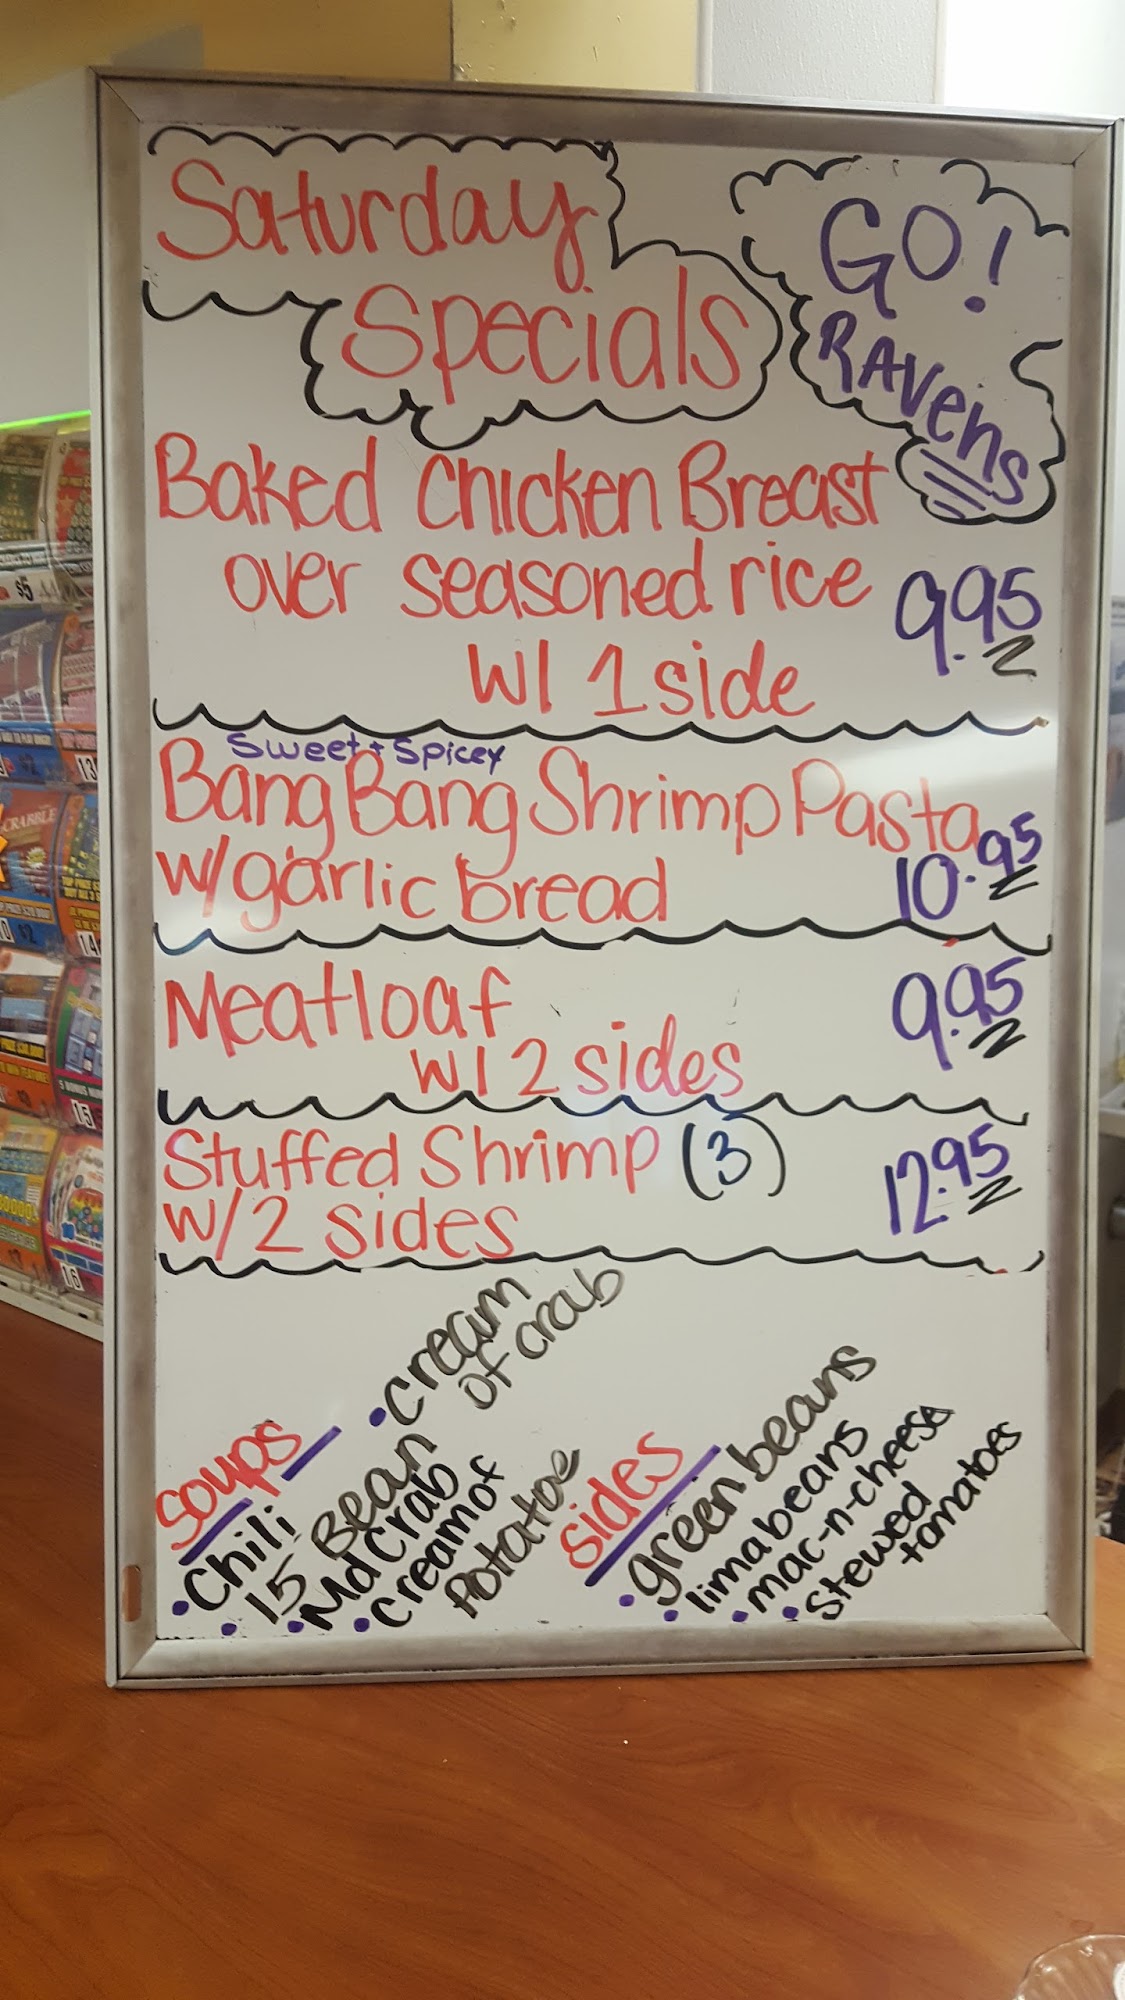 Saturday
Specials
GO!
RAvens
Baked Chicken Breast
over seasoned rice
w/ 1 side
9.95
Sweet + Spicey
Bang Bang Shrimp Pasta
w/garlic bread
10.95
Meatloaf
w/ 2 sides
9.95
Stuffed Shrimp (3)
w/2 sides
12.95
Soups
• Chili
• 15 Bean
• Md Crab
• Cream of
Potatoe
• Cream
of crab
Sides
• green beans
• lima beans
• mac-n-cheese
• Stewed
tomatoes
$5
13
CRABBLE
14
15
16